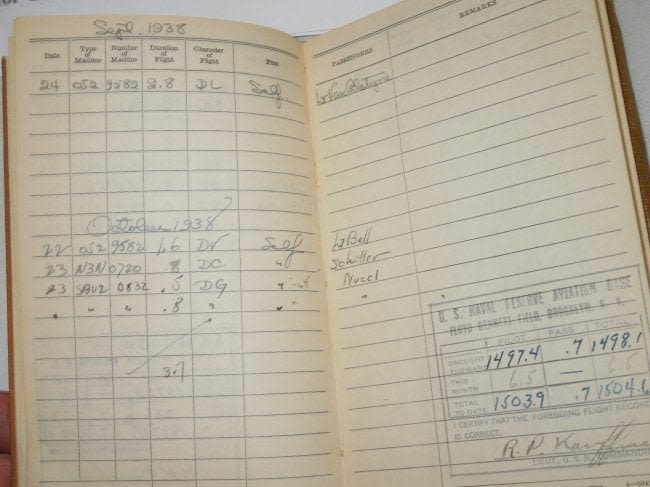 Sept. 1938
Date Type of Machine Number of Machine Duration of Flight Character of Flight Pilot PASSENGERS REMARKS
24 O52 9582 2.8 DL Self Lt
October 1938
22 O52 9582 1.6 DV Self Lt Bell
23 N3N 0720 .8 DC " Schiller
23 0832 .5 DG " " Nucci
" " " .8 " " "
3.7
U. S. NAVAL RESERVE AVIATION BASE
FLOYD BENNETT FIELD, BROOKLYN, N. Y.
PILOT PASS TOTAL
BROUGHT FORWARD 1497.4 .7 1498.1
THIS MONTH 6.5 — 6.5
TOTAL TO DATE 1503.9 .7 1504.6
I CERTIFY THAT THE FOREGOING FLIGHT RECORD
IS CORRECT.
R. P. Kauffman
LIEUT., U. S. N. COMMANDING